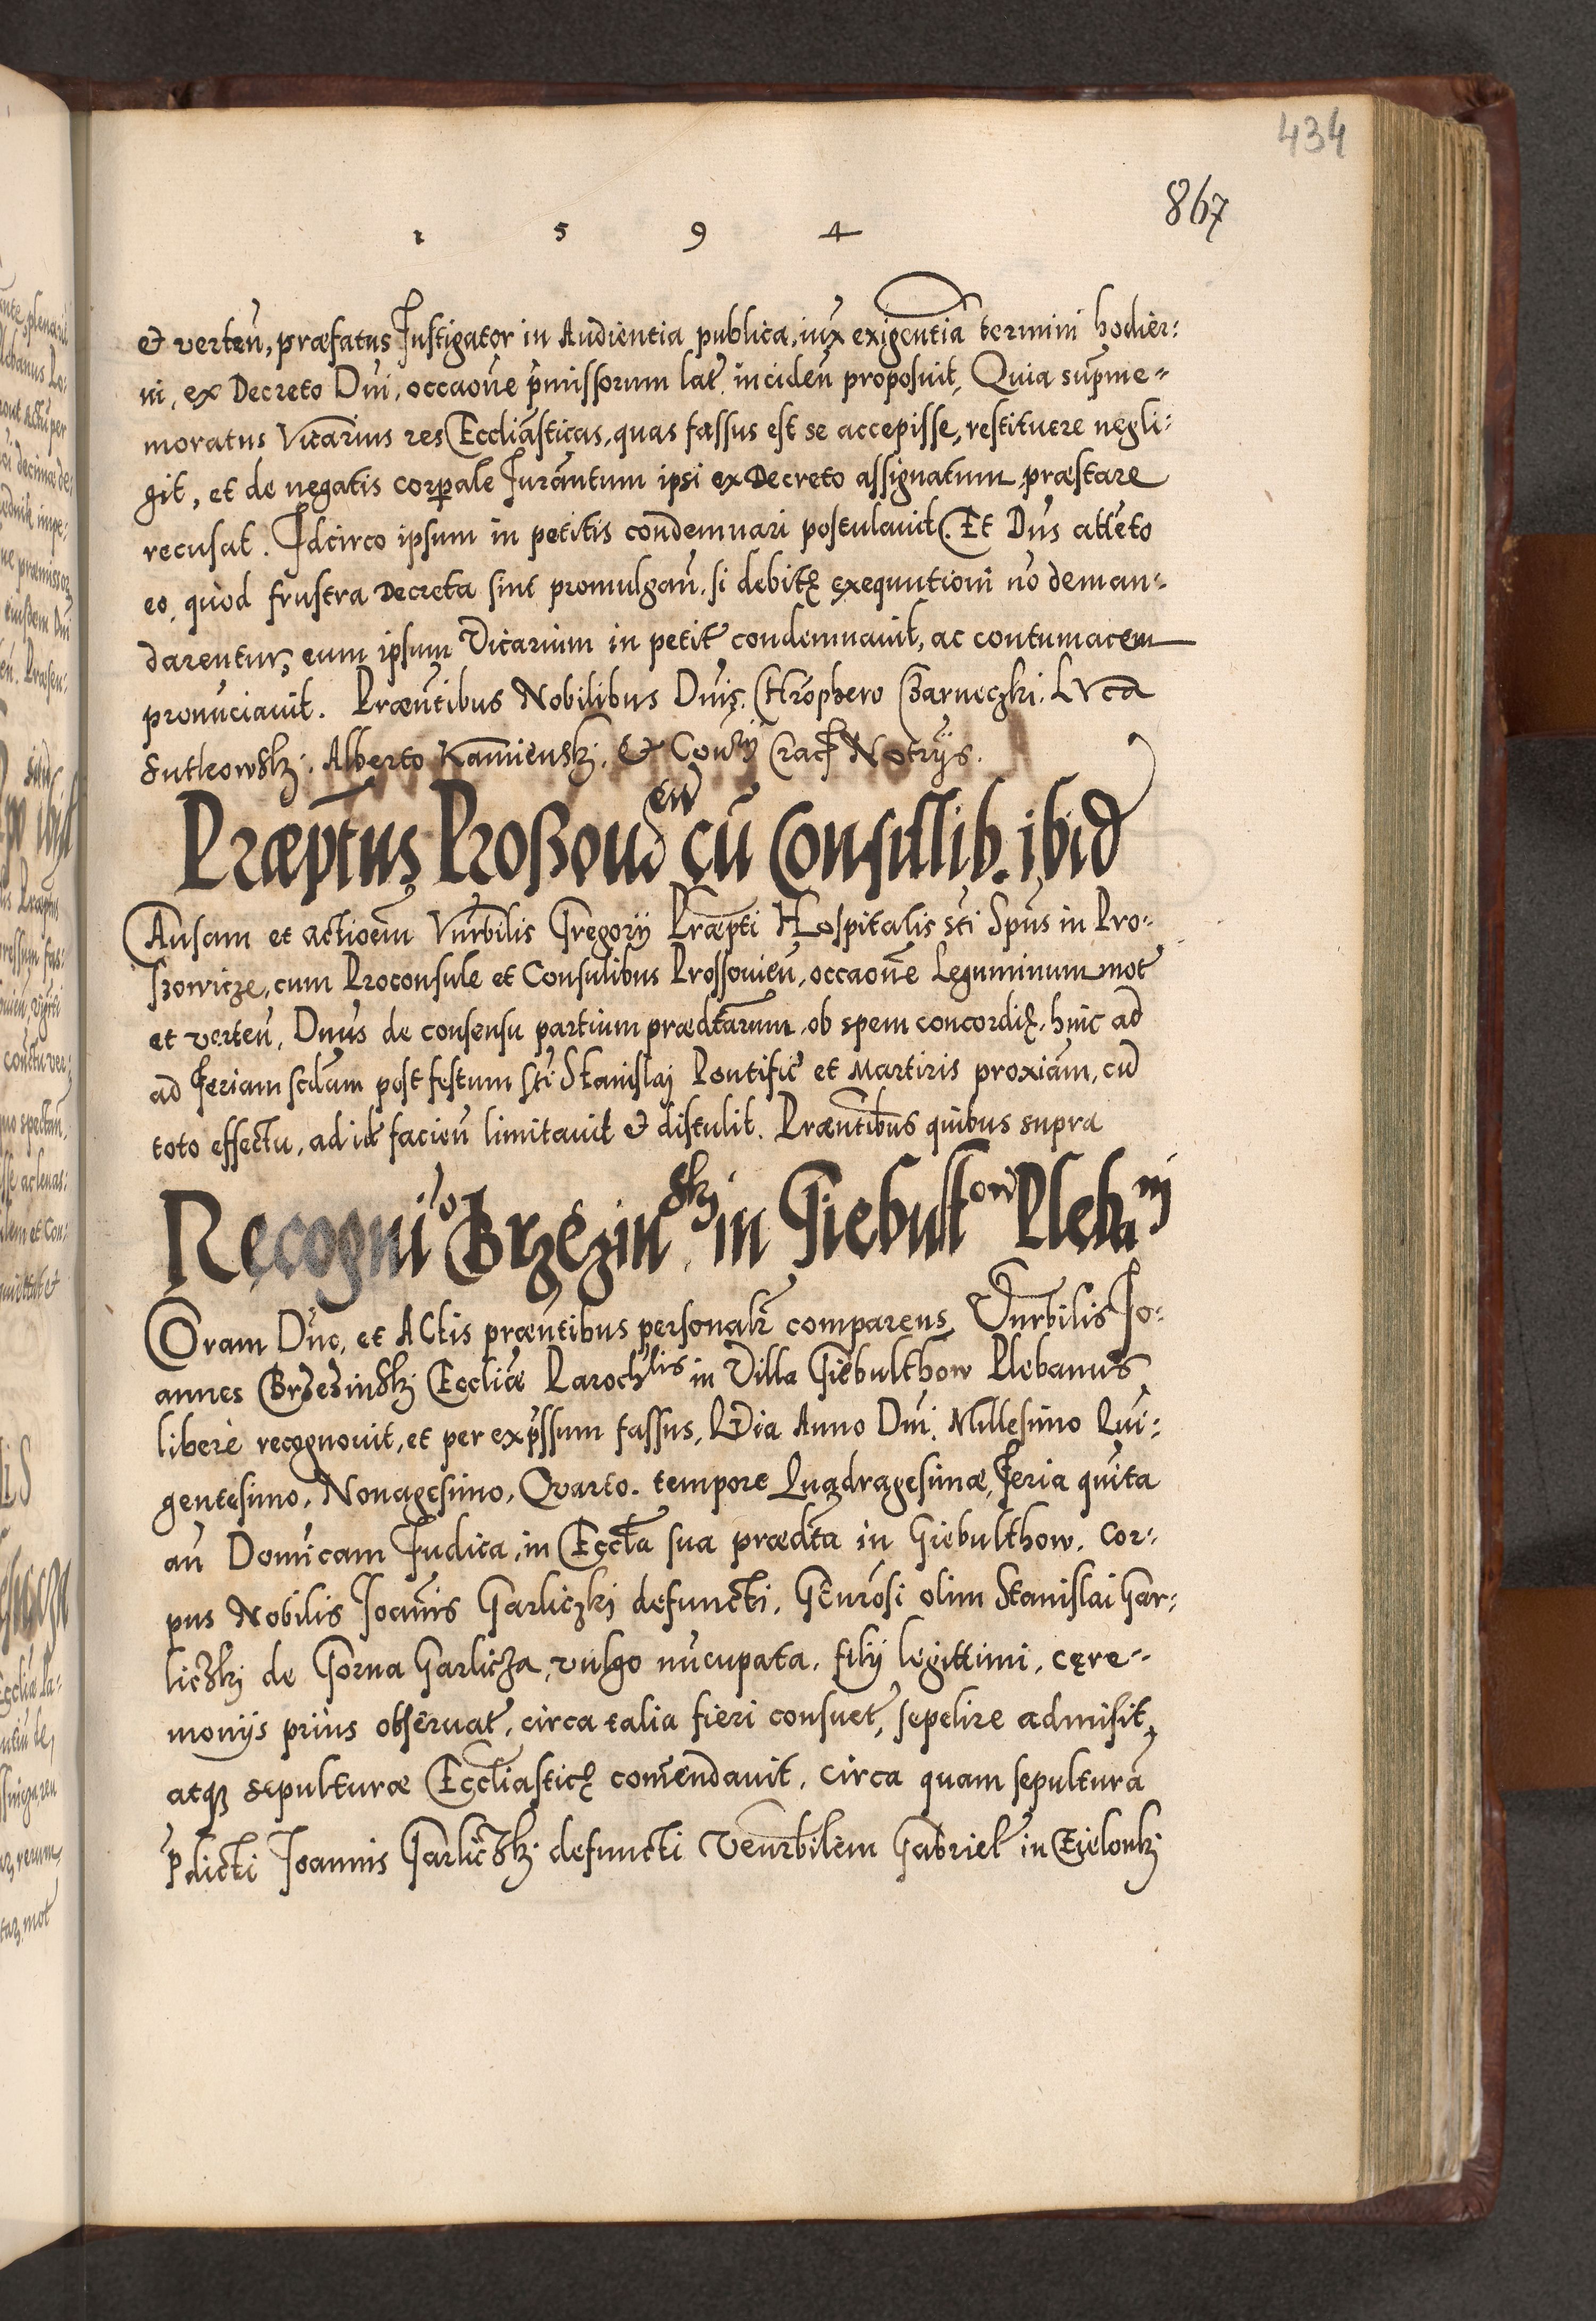 434
867
1 5 9 4
et verteñ, præfatus Instigator in Audientia publica, iux exigentiã termini hodier:
ni, ex Decreto Dñi, occaone p̃missorum lat̃ incideñ proposuit, Quia sup̃me-
moratus Vicarius res Eccliasticas, quas fassus est se accepisse, restituere negli:
git, et de negatis corpale Iurãntum ipsi ex Decreto assignatum præstare
recusat. Idcirco ipsum in petitis condemnari postulavit. Et Dñs atteto
eo, quod frustra Decreta sint promulgañ, si debitę exequutioni nõ deman-
darentur, eum ipsum Vicarium in petit̃ condemnavit, ac contumacem
pronuciavit. Præntibus Nobilibus Dñis Chrõphero Czarneczki, Luca
Sutkowskj, Alberto Kamienskj, et Cons̃ Crac̃ Notrijs.
Præptus Proßouień cũ Consulib. ibid
Causam et actioem Vnrbilis Gregorij Præpti Hospitalis Sti Spũs in Pro-
szowicze, cum Proconsule et Consulibus Prossovień, occaone Leguminum mot̃
et verteñ, Dnus de consensu partium prædtarum ob spem concordię, hinc ad
ad Feriam scdam post festum Sti Stanislaj Pontific̃ et Martiris proxiam, cũ
toto effectu, ad id̃ facień limitavit et distulit. Præntibus quibus supra
Recognio Brzezinskj in Giebultow Plebanj
Coram Dño, et Actis præntibus personalr̃ comparens Vnrbilis Io-
annes Brzezinskj Eccliæ Parochlis in Villa Giebulthow Plebanus
libere recognovit, et per exp̃ssum fassus, Qia Anno Dñi Millesimo Qui:
gentesimo, Nonagesimo, Qvarto. tempore Quadragesimæ, Feria quĩta
añ Domĩcam Iudica, in Ecclã sua prædta in Giebulthow, Cor-
pus Nobilis Ioañis Garliczkj defuncti, Gẽnrosi olim Stanislai Gar:
liczkj de Gorna Garlicza, vulgo nũcupata, filij legittimi, cęre-
monijs prius obseruat̃, circa talia fieri consuet̃, sepelire admisit,
atq; sepulturæ Eccliasticę comẽndavit, circa quam sepulturã
P̃dicti Ioannis Garlicskj defuncti Venrbilem Gabriel̃ in Czielonkj